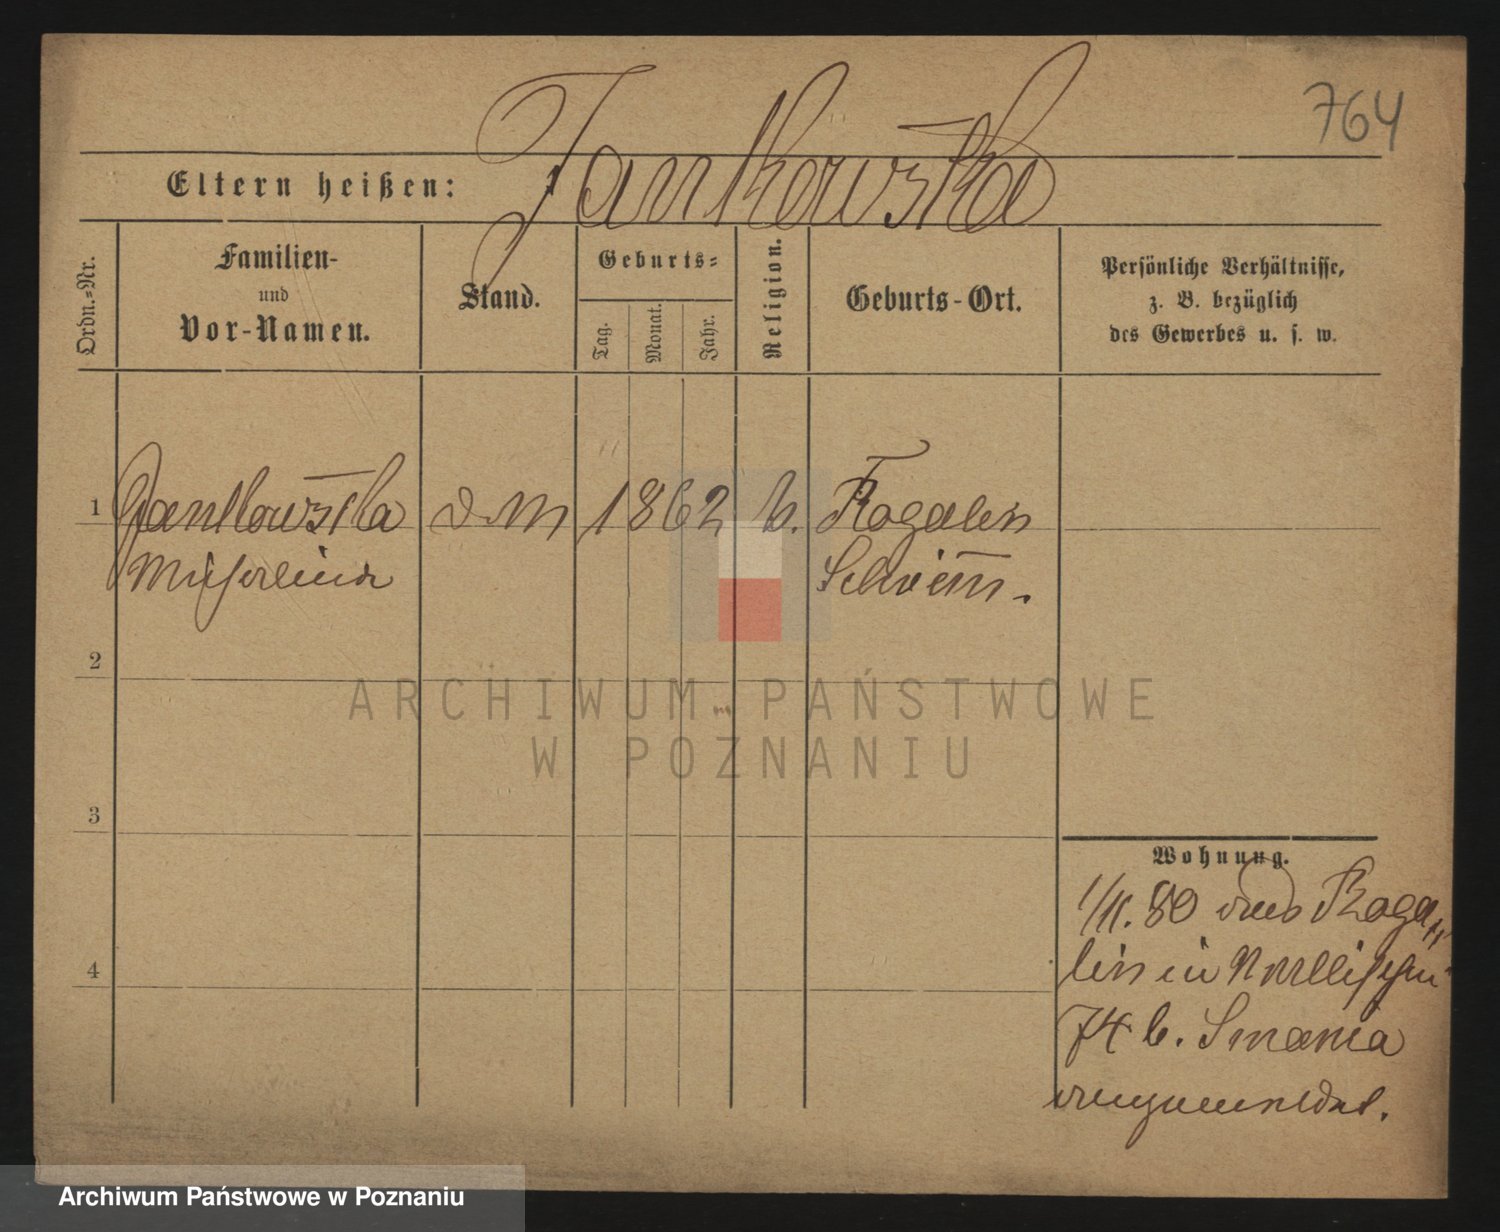 764
Jankowska
Eltern heißen:
Ordn.=Nr.
Familien-
und
Vor-Namen.
Stand.
Geburts=
Tag.
Monat.
Jahr.
Religion.
Geburts-Ort.
Persönliche Verhältnisse,
z. B. bezüglich
des Gewerbes u. s. w.
1 Jankowska 1862 Rogalin
Schrim.
2
3
Wohnung.
1/11. 80 aus Roga„
lin in Wallischei
74 b. Smania
angemeldet.
4
ARCHIWUM PAŃSTWOWE
W POZNANIU
Archiwum Państwowe w Poznaniu